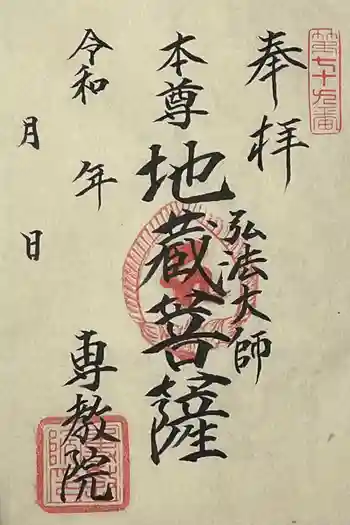 第七十九番
奉拝
弘法大師
本尊
地蔵菩薩
令和 年
月 日
専教院